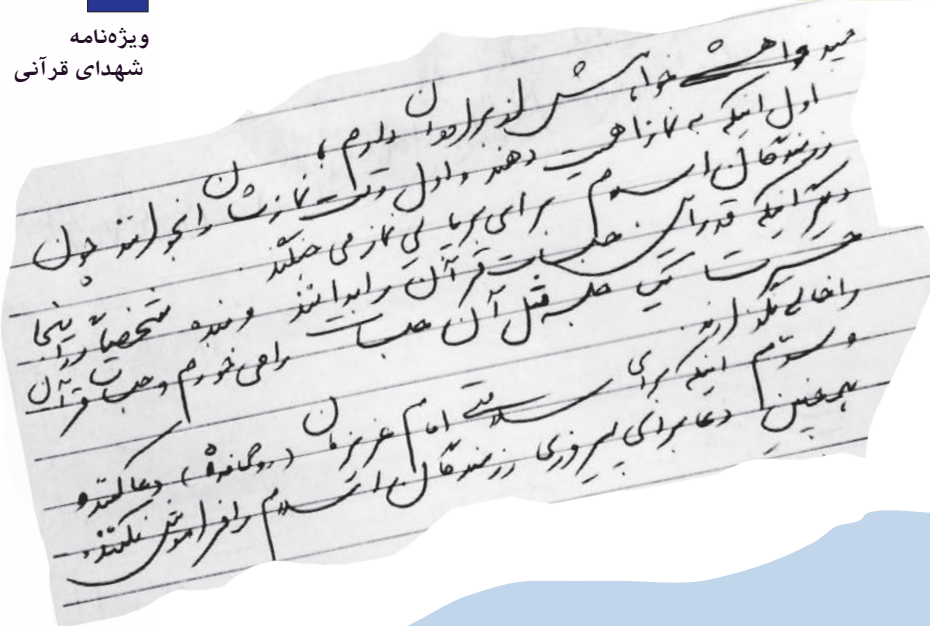 ویژه‌نامه
شهدای قرآنی
چند خواهش از برادران دارم ،
اول اینکه به نماز اهمیت دهند و اول وقت نمازشان را بخوانند چون
رزمندگان اسلام برای برپایی نماز می جنگند.
دیگر اینکه قدر این جلسات قرآن را بدانند و بنده شخصاً در اینجا
حسرت یک جلسه مثل آن جلسات را می خورم و جلسات قرآن
را خالی نگذارند.
و سوم اینکه برای سلامتی امام عزیزمان ( ) دعا کنند و
همچنین دعا برای پیروزی رزمندگان اسلام را فراموش نکنند.